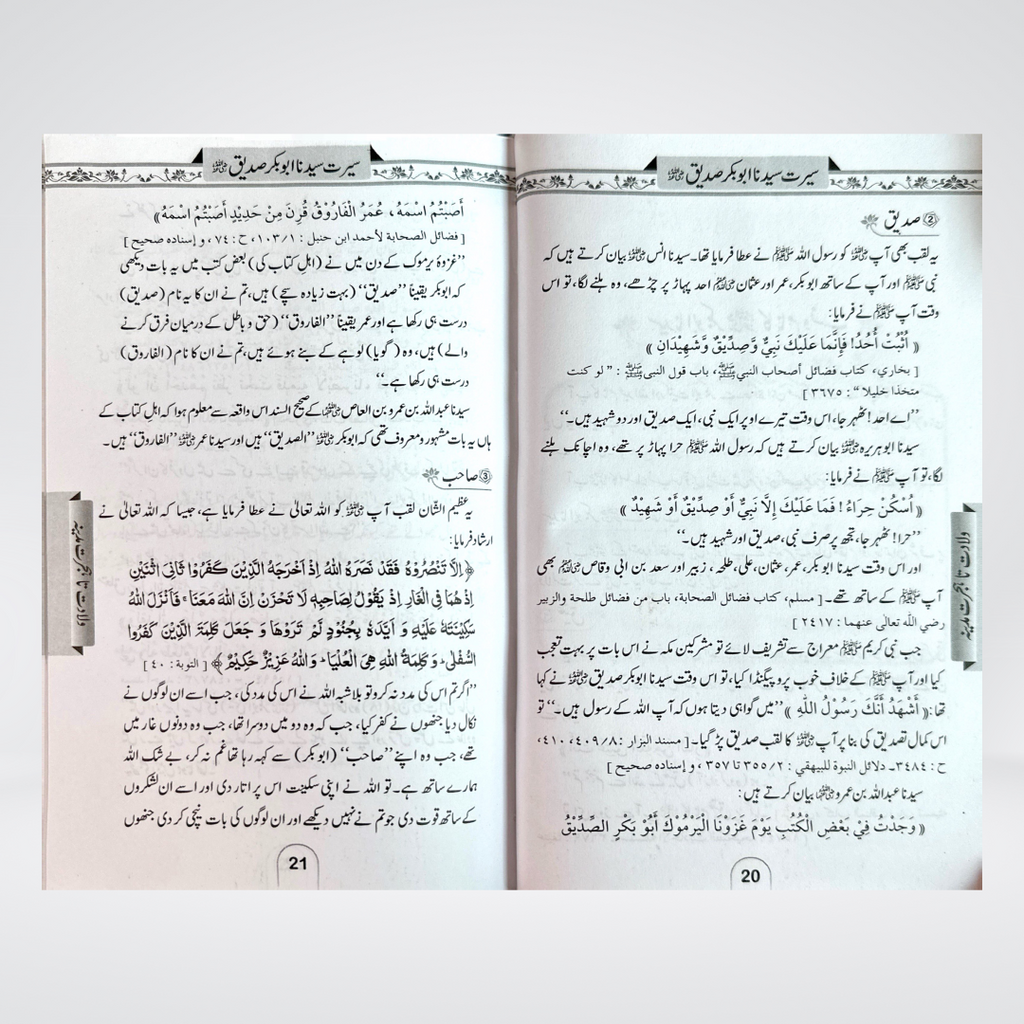 سیرت سیدنا ابوبکر صدیق رضی اللہ عنہ
② صدیق
یہ لقب بھی آپ رضی اللہ عنہ کو رسول اللہ ﷺ نے عطا فرمایا تھا۔ سیدنا انس رضی اللہ عنہ بیان کرتے ہیں کہ
نبی ﷺ اور آپ کے ساتھ ابوبکر، عمر اور عثمان رضی اللہ عنہم احد پہاڑ پر چڑھے، وہ ہلنے لگا، تو اس
وقت آپ ﷺ نے فرمایا:
« اُثْبُتْ أُحُدُ! فَإِنَّمَا عَلَيْكَ نَبِيٌّ وَّصِدِّيْقٌ وَّشَهِيْدَانِ »
[ بخاري، كتاب فضائل أصحاب النبي ﷺ، باب قول النبي ﷺ : " لو كنت
متخذا خليلا " : ٣٦٧٥ ]
’’اے احد! ٹھہر جا، اس وقت تیرے اوپر ایک نبی، ایک صدیق اور دو شہید ہیں۔‘‘
سیدنا ابوہریرہ رضی اللہ عنہ بیان کرتے ہیں کہ رسول اللہ ﷺ حرا پہاڑ پر تھے، وہ اچانک ہلنے
لگا، تو آپ ﷺ نے فرمایا:
« اُسْكُنْ حِرَاءُ ! فَمَا عَلَيْكَ إِلَّا نَبِيٌّ أَوْ صِدِّيْقٌ أَوْ شَهِيْدٌ »
’’حرا! ٹھہر جا، تجھ پر صرف نبی، صدیق اور شہید ہیں۔‘‘
اور اس وقت سیدنا ابوبکر، عمر، عثمان، علی، طلحہ، زبیر اور سعد بن ابی وقاص رضی اللہ عنہم بھی
آپ ﷺ کے ساتھ تھے۔ [ مسلم، كتاب فضائل الصحابة، باب من فضائل طلحة والزبير
رضي اللّٰه تعالى عنهما : ٢٤١٧ ]
جب نبی کریم ﷺ معراج سے تشریف لائے تو مشرکین مکہ نے اس بات پر بہت تعجب
کیا اور آپ ﷺ کے خلاف خوب پروپیگنڈا کیا، تو اس وقت سیدنا ابوبکر صدیق رضی اللہ عنہ نے کہا
تھا: « أَشْهَدُ أَنَّكَ رَسُوْلُ اللّٰهِ » ’’میں گواہی دیتا ہوں کہ آپ اللہ کے رسول ہیں۔‘‘ تو
اس کمال تصدیق کی بنا پر آپ رضی اللہ عنہ کا لقب صدیق پڑ گیا۔ [ مسند البزار : ٤٠٩/٨، ٤١٠،
ح : ٣٤٨٤۔ دلائل النبوة للبيهقي : ٣٥٥/٢ تا ٣٥٧ ، و إسناده صحيح ]
سیدنا عبد اللہ بن عمرو رضی اللہ عنہما بیان کرتے ہیں:
« وَجَدْتُ فِيْ بَعْضِ الْكُتُبِ يَوْمَ غَزَوْنَا الْيَرْمُوْكَ أَبُوْ بَكْرٍ الصِّدِّيْقُ
ولادت تا ہجرت مدینہ
20
سیرت سیدنا ابوبکر صدیق رضی اللہ عنہ
أَصَبْتُمُ اسْمَهُ ، عُمَرُ الْفَارُوْقُ قُرِنَ مِنْ حَدِيْدٍ أَصَبْتُمُ اسْمَهُ »
[ فضائل الصحابة لأحمد ابن حنبل : ١٠٣/١، ح : ٧٤ ، و إسناده صحيح ]
’’غزوۂ یرموک کے دن میں نے (اہل کتاب کی) بعض کتب میں یہ بات دیکھی
کہ ابوبکر یقیناً ’’صدیق‘‘ (بہت زیادہ سچے) ہیں، تم نے ان کا یہ نام (صدیق)
درست ہی رکھا ہے اور عمر یقیناً ’’الفاروق‘‘ (حق و باطل کے درمیان فرق کرنے
والے) ہیں، وہ (گویا) لوہے کے بنے ہوئے ہیں، تم نے ان کا نام (الفاروق)
درست ہی رکھا ہے۔‘‘
سیدنا عبد اللہ بن عمرو بن العاص رضی اللہ عنہما کے صحیح السند اس واقعہ سے معلوم ہوا کہ اہل کتاب کے
ہاں یہ بات مشہور و معروف تھی کہ ابوبکر رضی اللہ عنہ ’’الصدیق‘‘ ہیں اور سیدنا عمر رضی اللہ عنہ ’’الفاروق‘‘ ہیں۔
③ صاحب
یہ عظیم الشان لقب آپ رضی اللہ عنہ کو اللہ تعالیٰ نے عطا فرمایا ہے، جیسا کہ اللہ تعالیٰ نے
ارشاد فرمایا:
﴿ اِلَّا تَنْصُرُوْهُ فَقَدْ نَصَرَهُ اللّٰهُ اِذْ اَخْرَجَهُ الَّذِيْنَ كَفَرُوْا ثَانِيَ اثْنَيْنِ
اِذْ هُمَا فِي الْغَارِ اِذْ يَقُوْلُ لِصَاحِبِهٖ لَا تَحْزَنْ اِنَّ اللّٰهَ مَعَنَا ۚ فَاَنْزَلَ اللّٰهُ
سَكِيْنَتَهٗ عَلَيْهِ وَ اَيَّدَهٗ بِجُنُوْدٍ لَّمْ تَرَوْهَا وَ جَعَلَ كَلِمَةَ الَّذِيْنَ كَفَرُوا
السُّفْلٰى ۭ وَ كَلِمَةُ اللّٰهِ هِيَ الْعُلْيَا ۭ وَ اللّٰهُ عَزِيْزٌ حَكِيْمٌ ﴾ [ التوبة : ٤٠ ]
’’اگر تم اس کی مدد نہ کرو تو بلاشبہ اللہ نے اس کی مدد کی، جب اسے ان لوگوں نے
نکال دیا جنھوں نے کفر کیا، جب کہ وہ دو میں دوسرا تھا، جب وہ دونوں غار میں
تھے، جب وہ اپنے ’’صاحب‘‘ (ابوبکر) سے کہہ رہا تھا غم نہ کر، بے شک اللہ
ہمارے ساتھ ہے۔ تو اللہ نے اپنی سکینت اس پر اتار دی اور اسے ان لشکروں
کے ساتھ قوت دی جو تم نے نہیں دیکھے اور ان لوگوں کی بات نیچی کر دی جنھوں
ولادت تا ہجرت مدینہ
21